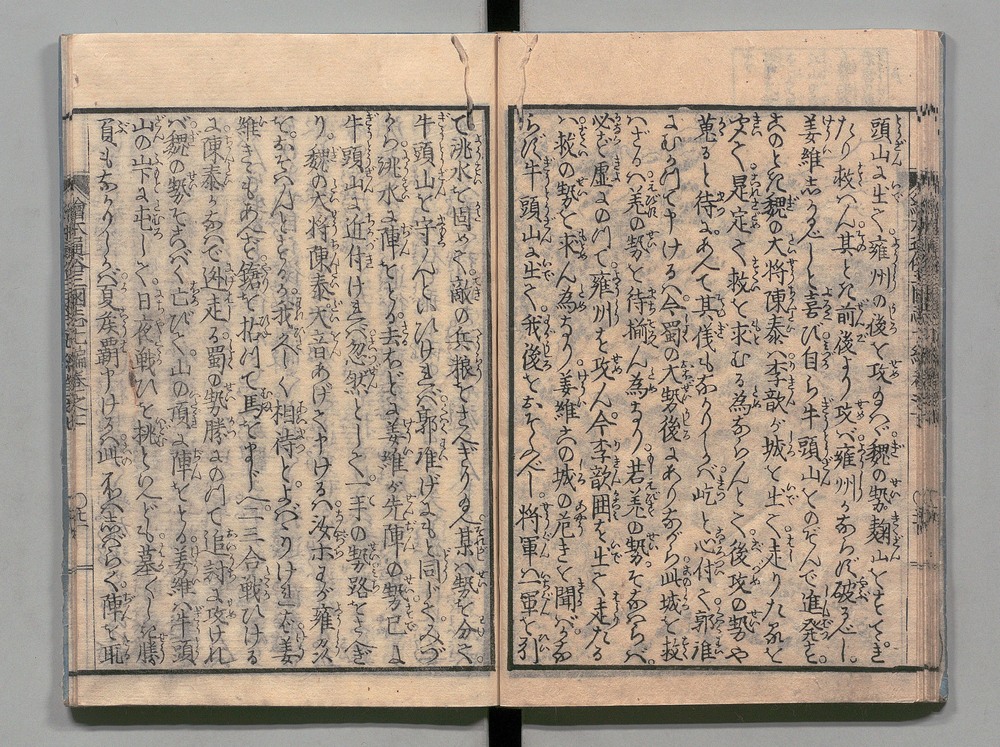 頭山に出て雍州の後を攻れバ魏の勢麹山をすてゝき
たり救ハん其とき前後より攻バ雍州かならず破るべし
姜維志かるべしと喜び自ら牛頭山をのぞんで進発す
此とき魏の大将陳泰ハ李歆が城を出て走りたるを
見て是定て救を求むる為ならんとて後攻の勢や
蒐ると待にあへて其儀もなかりしかバ屹と心付て郭淮
にむかつて申けるハ今蜀の大勢後にありながら此城を救
ハざるハ羌の勢を待揃ん為なり若羌の勢そなハらバ
必ず虚にのつて雍州を攻ん今李歆囲を出て走たる
ハ救の勢を求ん為なり姜維此城の危きを聞バかな
らず牛頭山に出て我後をおそふべし将軍ハ一軍を引
て洮水を固めて敵の兵粮をさへぎり給へ某ハ勢を分て
牛頭山を守らんといひけれバ郭淮げにもと同じてみづ
から洮水に陣をとる去ほどに姜維が先陣の勢已に
牛頭山に近付けれバ忽然として一手の勢路をさへぎ
り魏の大将陳泰大音あげて申けるハ汝ホすが雍州
をおそハんとするか我久しく相待とよバりけれバ姜
維きともあへず鎗を拈つて馬をまじへ二三合戦ひける
に陳泰かなハで迯走る蜀の勢勝にのつて追討に攻けれ
バ魏の勢ことごとく亡びて山の頂に陣をとる姜維ハ牛頭
山の下に屯して日夜戦ひを挑といへども墓々しき勝
負もなかりしかバ夏矦覇申けるハ此処久しからぐ陣を取